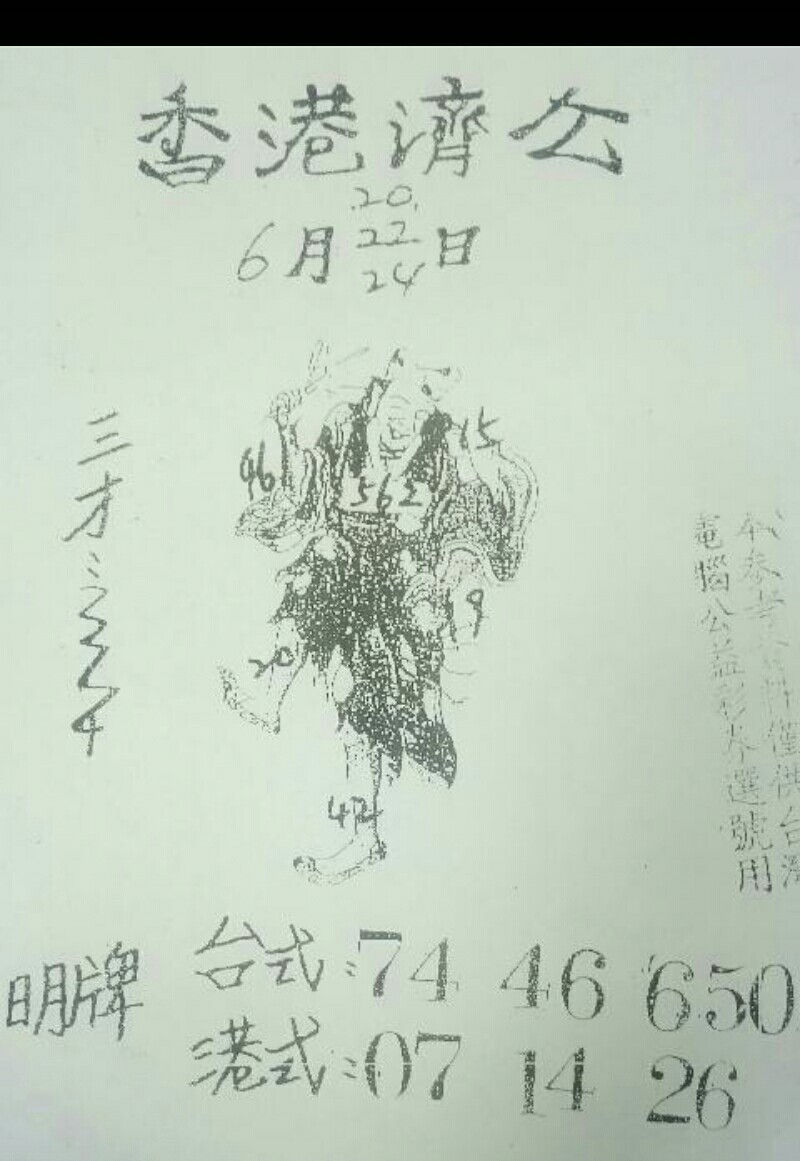 香港濟公
20.
6月22日
24
三才:
46
15
562
19
20
42
本參考資料僅供台灣
電腦公益彩券選號用
明牌
台式:74 46 650
港式:07 14 26